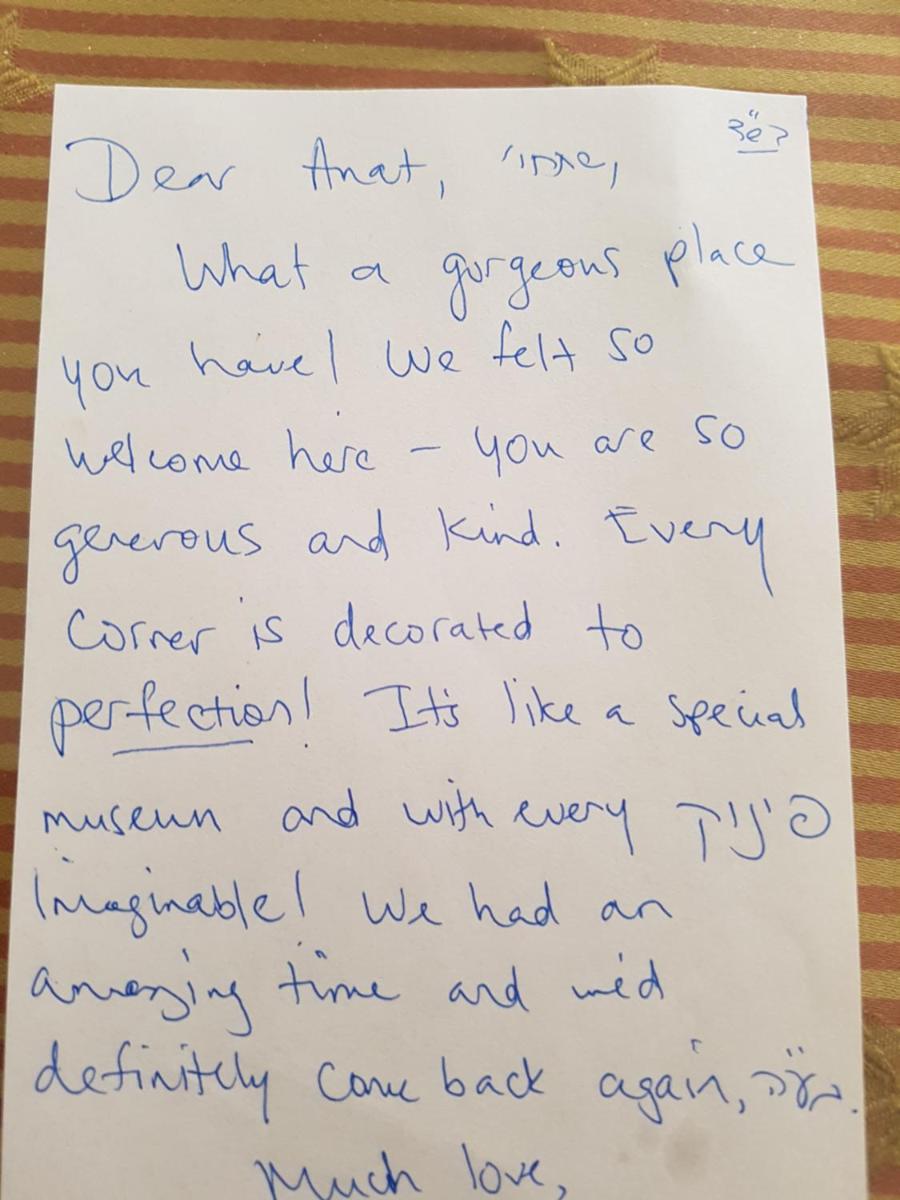 בס״ד
Dear Anat,
What a gorgeous place
you have! We felt so
welcome here – you are so
generous and kind. Every
corner is decorated to
perfection! It's like a special
museum and with every פינוק
imaginable! We had an
amazing time and we'd
definitely come back again, בע״ה.
Much love,